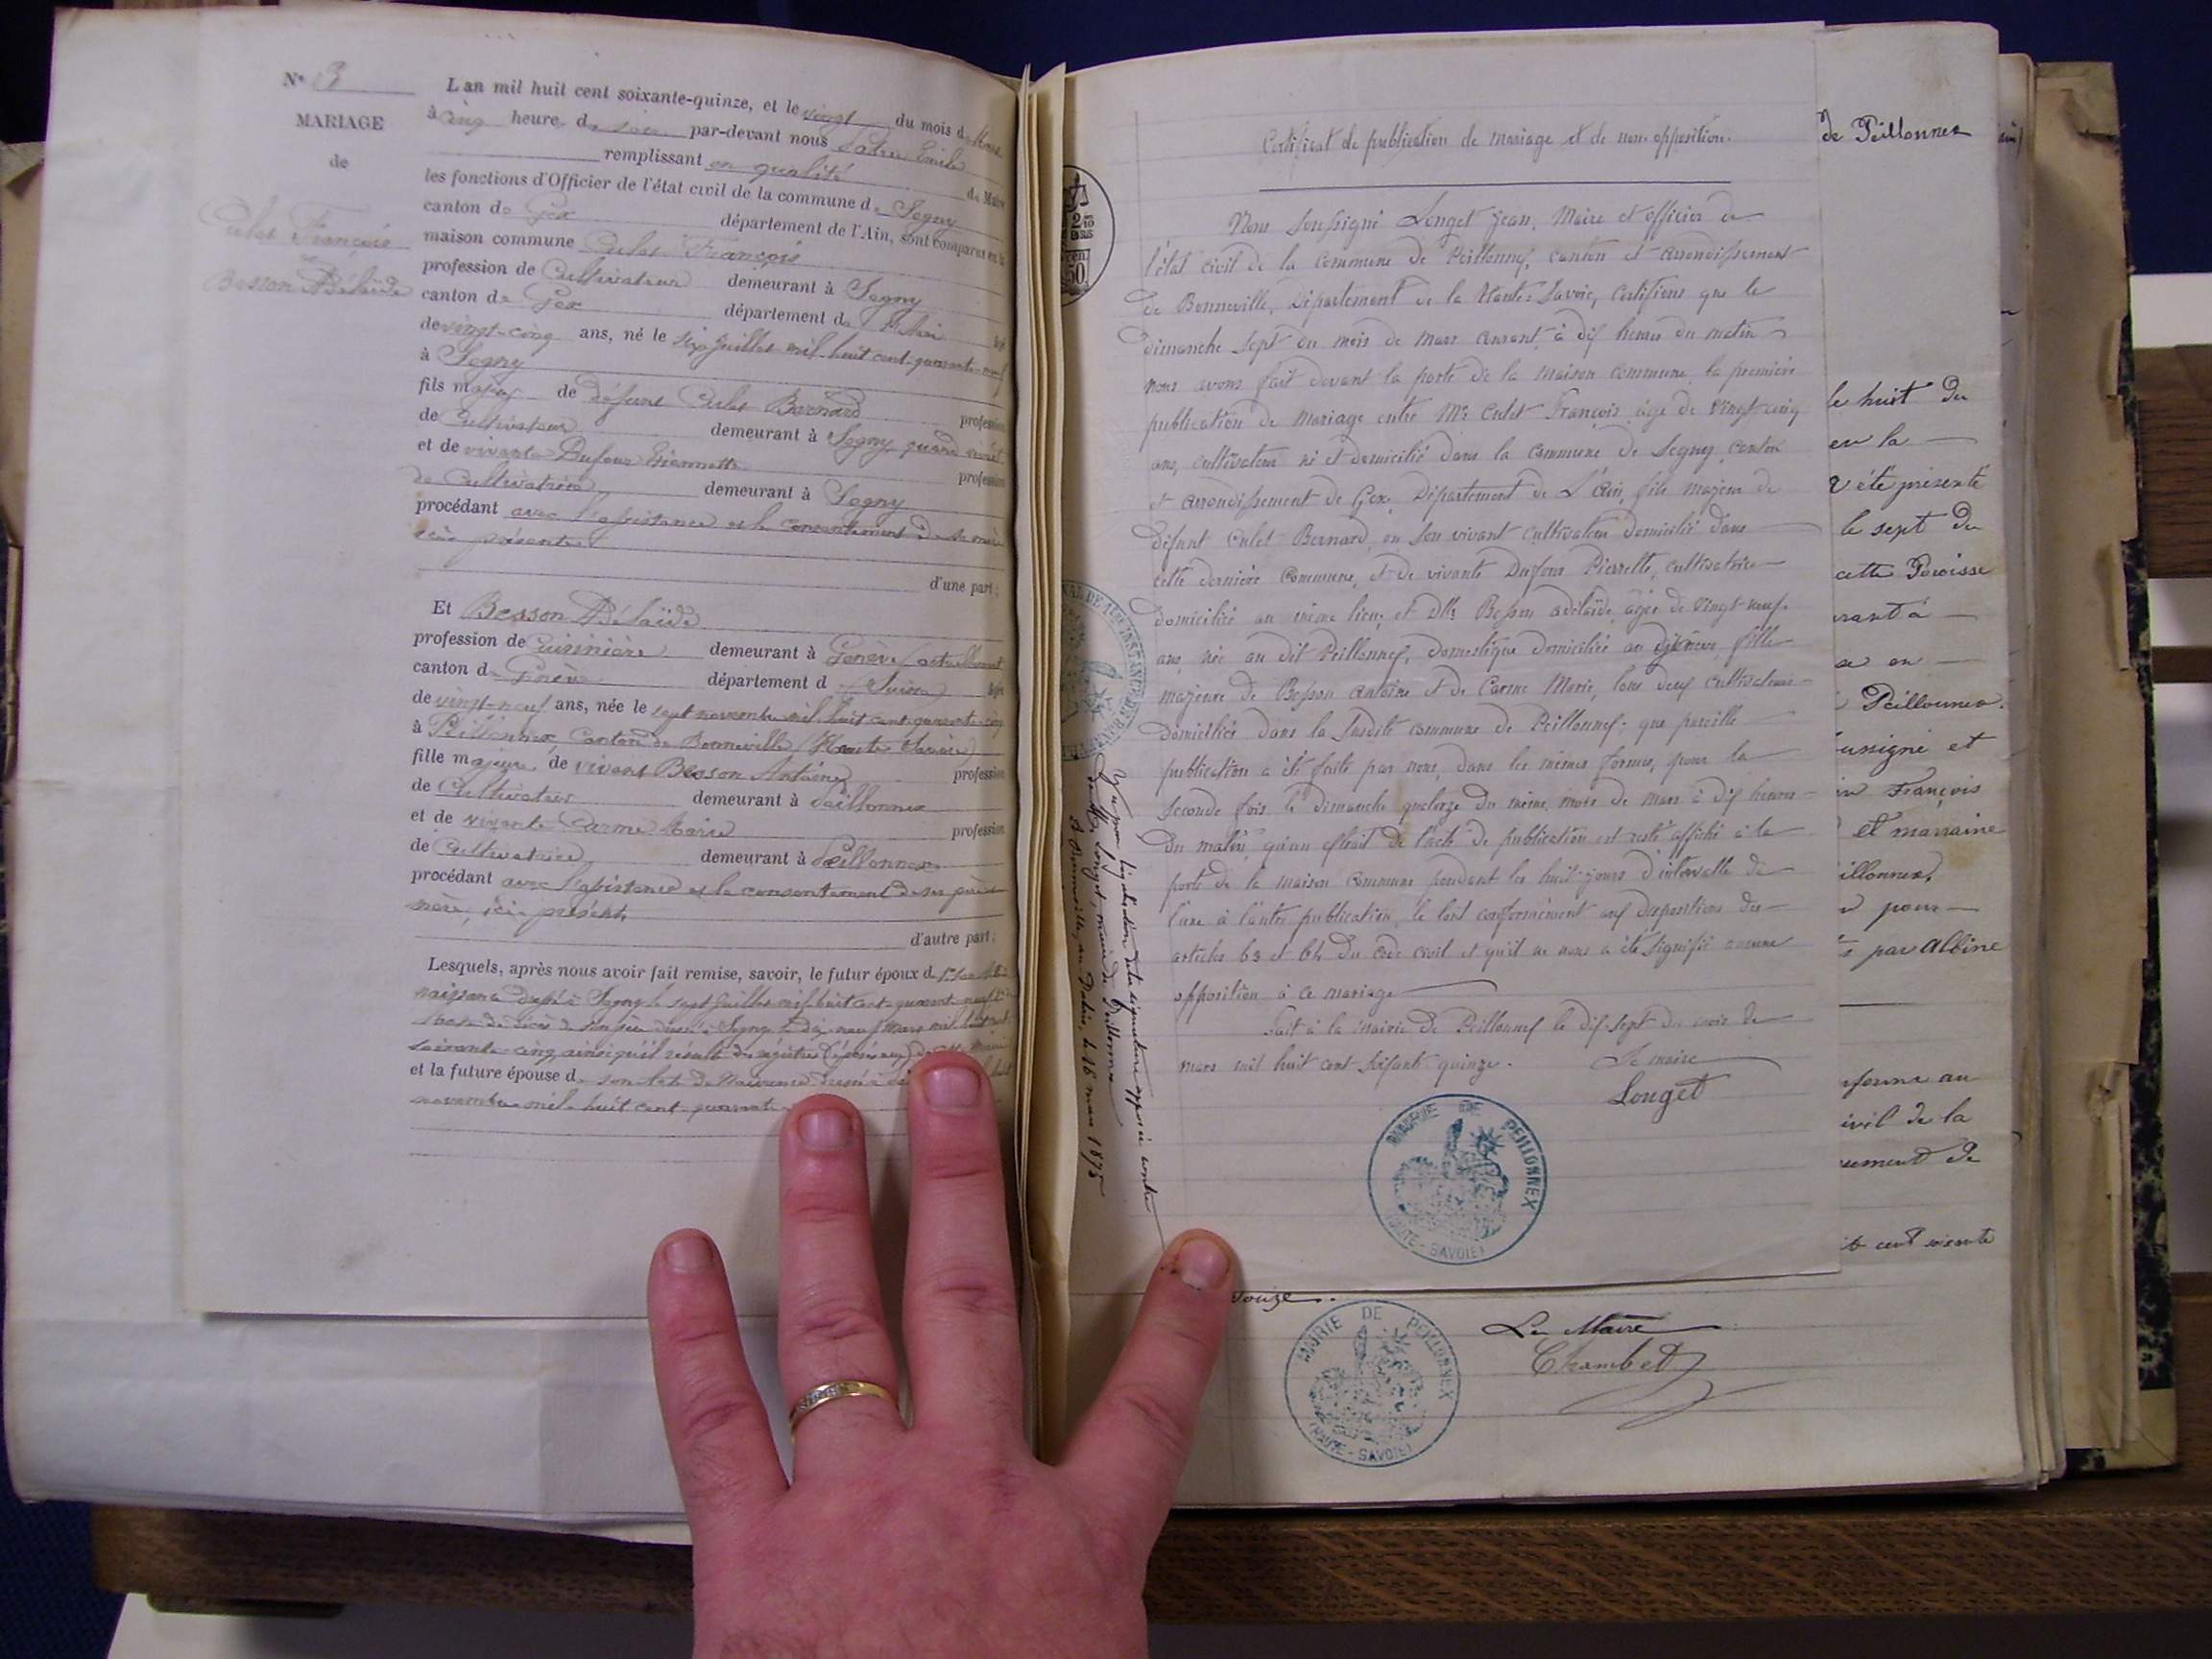 N° 3
MARIAGE
de
Culet François
et
Besson Adélaïde
L'an mil huit cent soixante-quinze, et le vingt du mois de Mars
à cinq heure du soir par-devant nous Emile
remplissant en qualité de Maire
les fonctions d'Officier de l'état civil de la commune de Segny
canton de Gex département de l'Ain, sont comparus en la
maison commune Culet François
profession de Cultivateur demeurant à Segny
canton de Gex département de l'Ain âgé
de vingt-cinq ans, né le six Juillet mil huit cent quarante-neuf
à Segny
fils majeur de défunt Culet Bernard profession
de Cultivateur demeurant à Segny quand vivait
et de vivante Dufour profession
de Cultivatrice demeurant à Segny
procédant avec l'assistance et le consentement de sa mère
ici présente
d'une part;
Et Besson Adélaïde
profession de Cuisinière demeurant à Genève actuellement
canton de Genève département d (Suisse) âgée
de vingt-neuf ans, née le sept novembre mil huit cent quarante-cinq
à Peillonnex, Canton de Bonneville (Haute Savoie)
fille majeure de vivant Besson Antoine profession
de Cultivateur demeurant à Peillonnex
et de vivante Carme Marie profession
de Cultivatrice demeurant à Peillonnex
procédant avec l'assistance et le consentement de ses père et
mère, ici présents
d'autre part;
Lesquels, après nous avoir fait remise, savoir, le futur époux d
naissance dressé à Segny le sept Juillet mil huit cent quarante neuf
de décès de son père dressé à Segny le dix neuf Mars mil huit cent
soixante-cinq, ainsi qu'il résulte du registre
et la future épouse d son acte de Naissance dressé à
novembre mil huit cent quarante
Certificat de publication de mariage et de non-opposition.
Nous soussigné Longet Jean, Maire et officier de
l'état civil de la commune de Peillonnex, canton et arrondissement
de Bonneville, Département de la Haute-Savoie, Certifions que le
dimanche sept du mois de mars courant à dix heures du matin
nous avons fait devant la porte de la maison commune la première
publication de mariage entre Mr Culet François âgé de vingt-cinq
ans, cultivateur né et domicilié dans la commune de Segny, canton
et arrondissement de Gex, Département de L'Ain, fils majeur de
défunt Culet Bernard, en son vivant cultivateur domicilié dans
cette dernière commune, et de vivante Dufour Pierrette, cultivatrice
domiciliée au même lieu; et Dlle Besson adélaïde, âgée de vingt-neuf
ans, née au dit Peillonnex, domestique domiciliée au fille
majeure de Besson antoine et de Carme Marie, tous deux cultivateurs
domiciliés dans la susdite commune de Peillonnex; que pareille
publication a été faite par nous, dans les mêmes formes, pour la
seconde fois le dimanche quatorze du même mois de mars à dix heures
du matin, qu'un extrait de l'acte de publication est resté affiché à la
porte de la maison commune pendant les huit jours d'intervalle de
l'une à l'autre publication, le tout conformément aux dispositions des
articles 63 et 64 du code civil et qu'il ne nous a été signifié aucune
opposition à ce mariage
Fait à la mairie de Peillonnex le dix-sept du mois de
mars mil huit cent soixante quinze.
Le maire
Longet
MAIRIE DE PEILLONNEX
(HAUTE-SAVOIE)
Vu pour légalisation de la signature apposée contre
de Mr Longet, maire de Peillonnex
A Bonneville, au Palais, le 18 mars 1875
de Peillonnex
le huit du
en la
été présenté
le sept du
cette Paroisse
à
en
Peillonnex.
soussigné et
François
et marraine
pour
par Albine
civil de la
cent soixante
douze.
Le Maire
Chambet
MAIRIE DE PEILLONNEX
(HAUTE-SAVOIE)